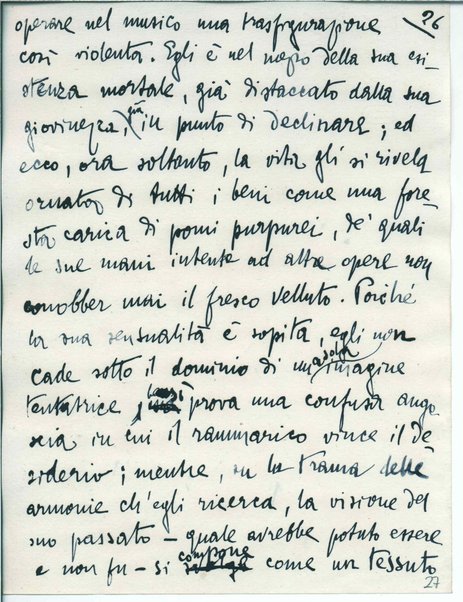 26
operare nel musico una trasfigurazione
così violenta. Egli è nel mezzo della sua esi-
stenza mortale, già distaccato dalla sua
giovinezza, già in punto di declinare; ed
ecco, ora soltanto, la vita gli si rivela
ornata di tutti i beni come una fore-
sta carica di pomi purpurei, de' quali
le sue mani intente ad altre opere non
conobber mai il fresco velluto. Poiché
la sua sensualità è sopita, egli non
cade sotto il dominio di una sola imagine
tentatrice, bensì prova una confusa ango-
scia in cui il rammarico vince il de-
siderio; mentre, su la trama delle
armonie ch'egli ricerca, la visione del
suo passato – quale avrebbe potuto essere
e non fu – si compone come un tessuto
27